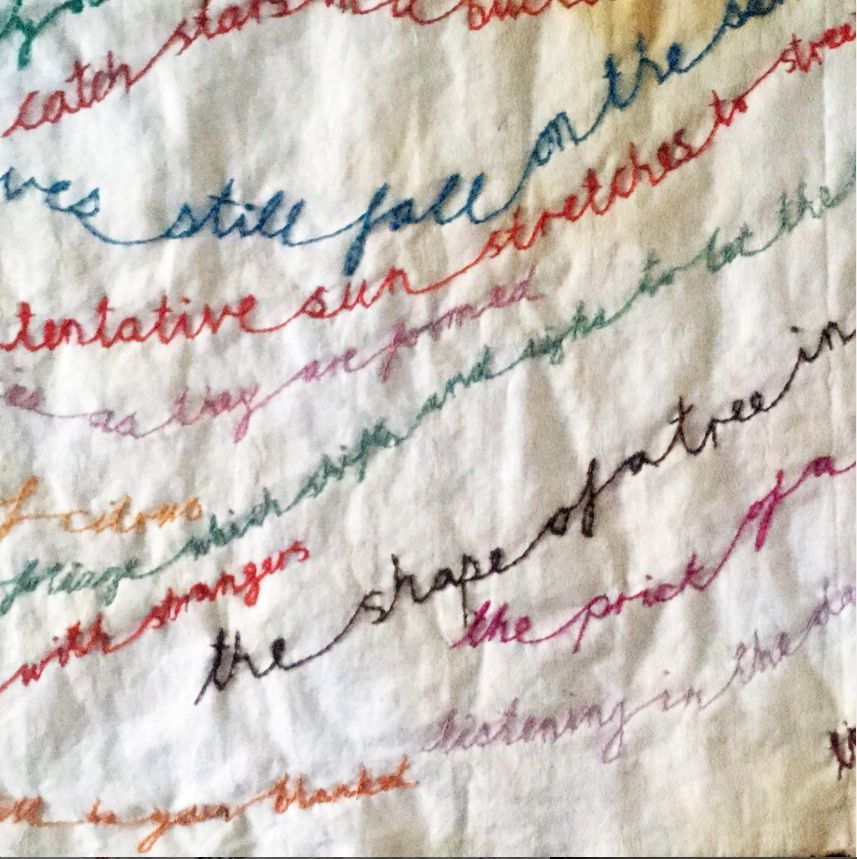 catch stars in a
still fall on the
tentative sun stretches to
as they are formed
foliage which shifts and sighs to let the
of citrus
with strangers
the shape of a tree in
the prick of a
listening in the
to your blanket